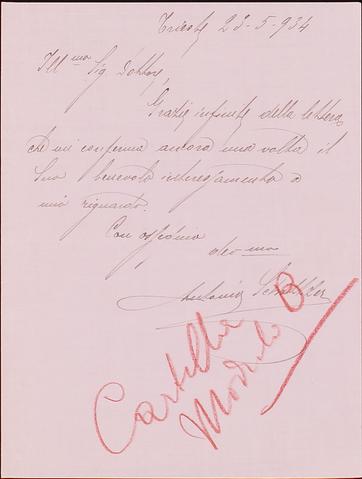 Trieste 23-5-934
Ill.mo Sig. Dottore,
Grazie infinite della lettera
che mi conferma ancora una volta il
Suo benevolo interessamento a
mio riguardo.
Con ossequio
dev.mo
Antonio
Cartella
Modulo B